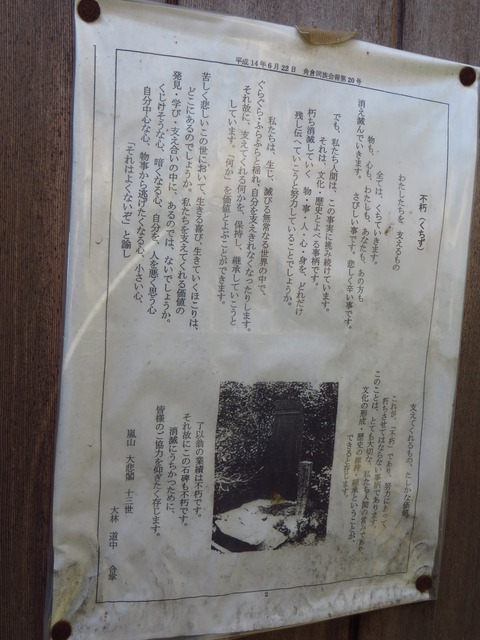 平成14年6月23日 角倉同族会報第20号
不朽(くちず)
わたしたちを、支えるもの
全ては、くちていきます。
物も、心も、わたしも、あなたも、あの方も
消え滅んでいきます。 さびしい事です。悲しくて辛い事です。
でも、私たち人間は、この事実に挑み続けています。
それは、文化・歴史とよべる事柄です。
朽ち消滅していく、物・事・人・心・身を、どれだけ
残し伝へていこうと努力していることでしょうか。
私たちは、生じ、滅びる無常なる世界の中で、
ぐらぐら・ふらふらと揺れ、自分を支えきれなくなったりします。
それ故に、支えてくれる何かを、保持し、継承していこうと
しています。「何か」を価値とよぶことができます。
苦しく悲しいこの世において、生きる喜び、生きていくほこりは、
どこにあるのでしょうか。私たちを支えてくれる価値の
発見・学び・支え合いの中に、あるのでは、ないでしょうか。
くじけそうな心、暗くなる心、自分を、人を悪く思う心
自分中心な心、物事から逃げたくなる心、小さい心、
「それはよくないぞ」と諭し
支えてくれるもの、たしかな価値、
これが、「不朽」であり、努力によって、
朽ちさせてはならない事柄であります。
このことは、とても大切な、私たち人間の営みであり、
文化の形成・歴史の維持・継承ということが、
できると存じます。
了以翁の業績は不朽です。
それ故にこの石碑も不朽です。
消滅にうちかつために、
皆様のご協力を仰ぎたく存じます。
嵐山 大悲閣 十三世
大林 道中 合掌
2